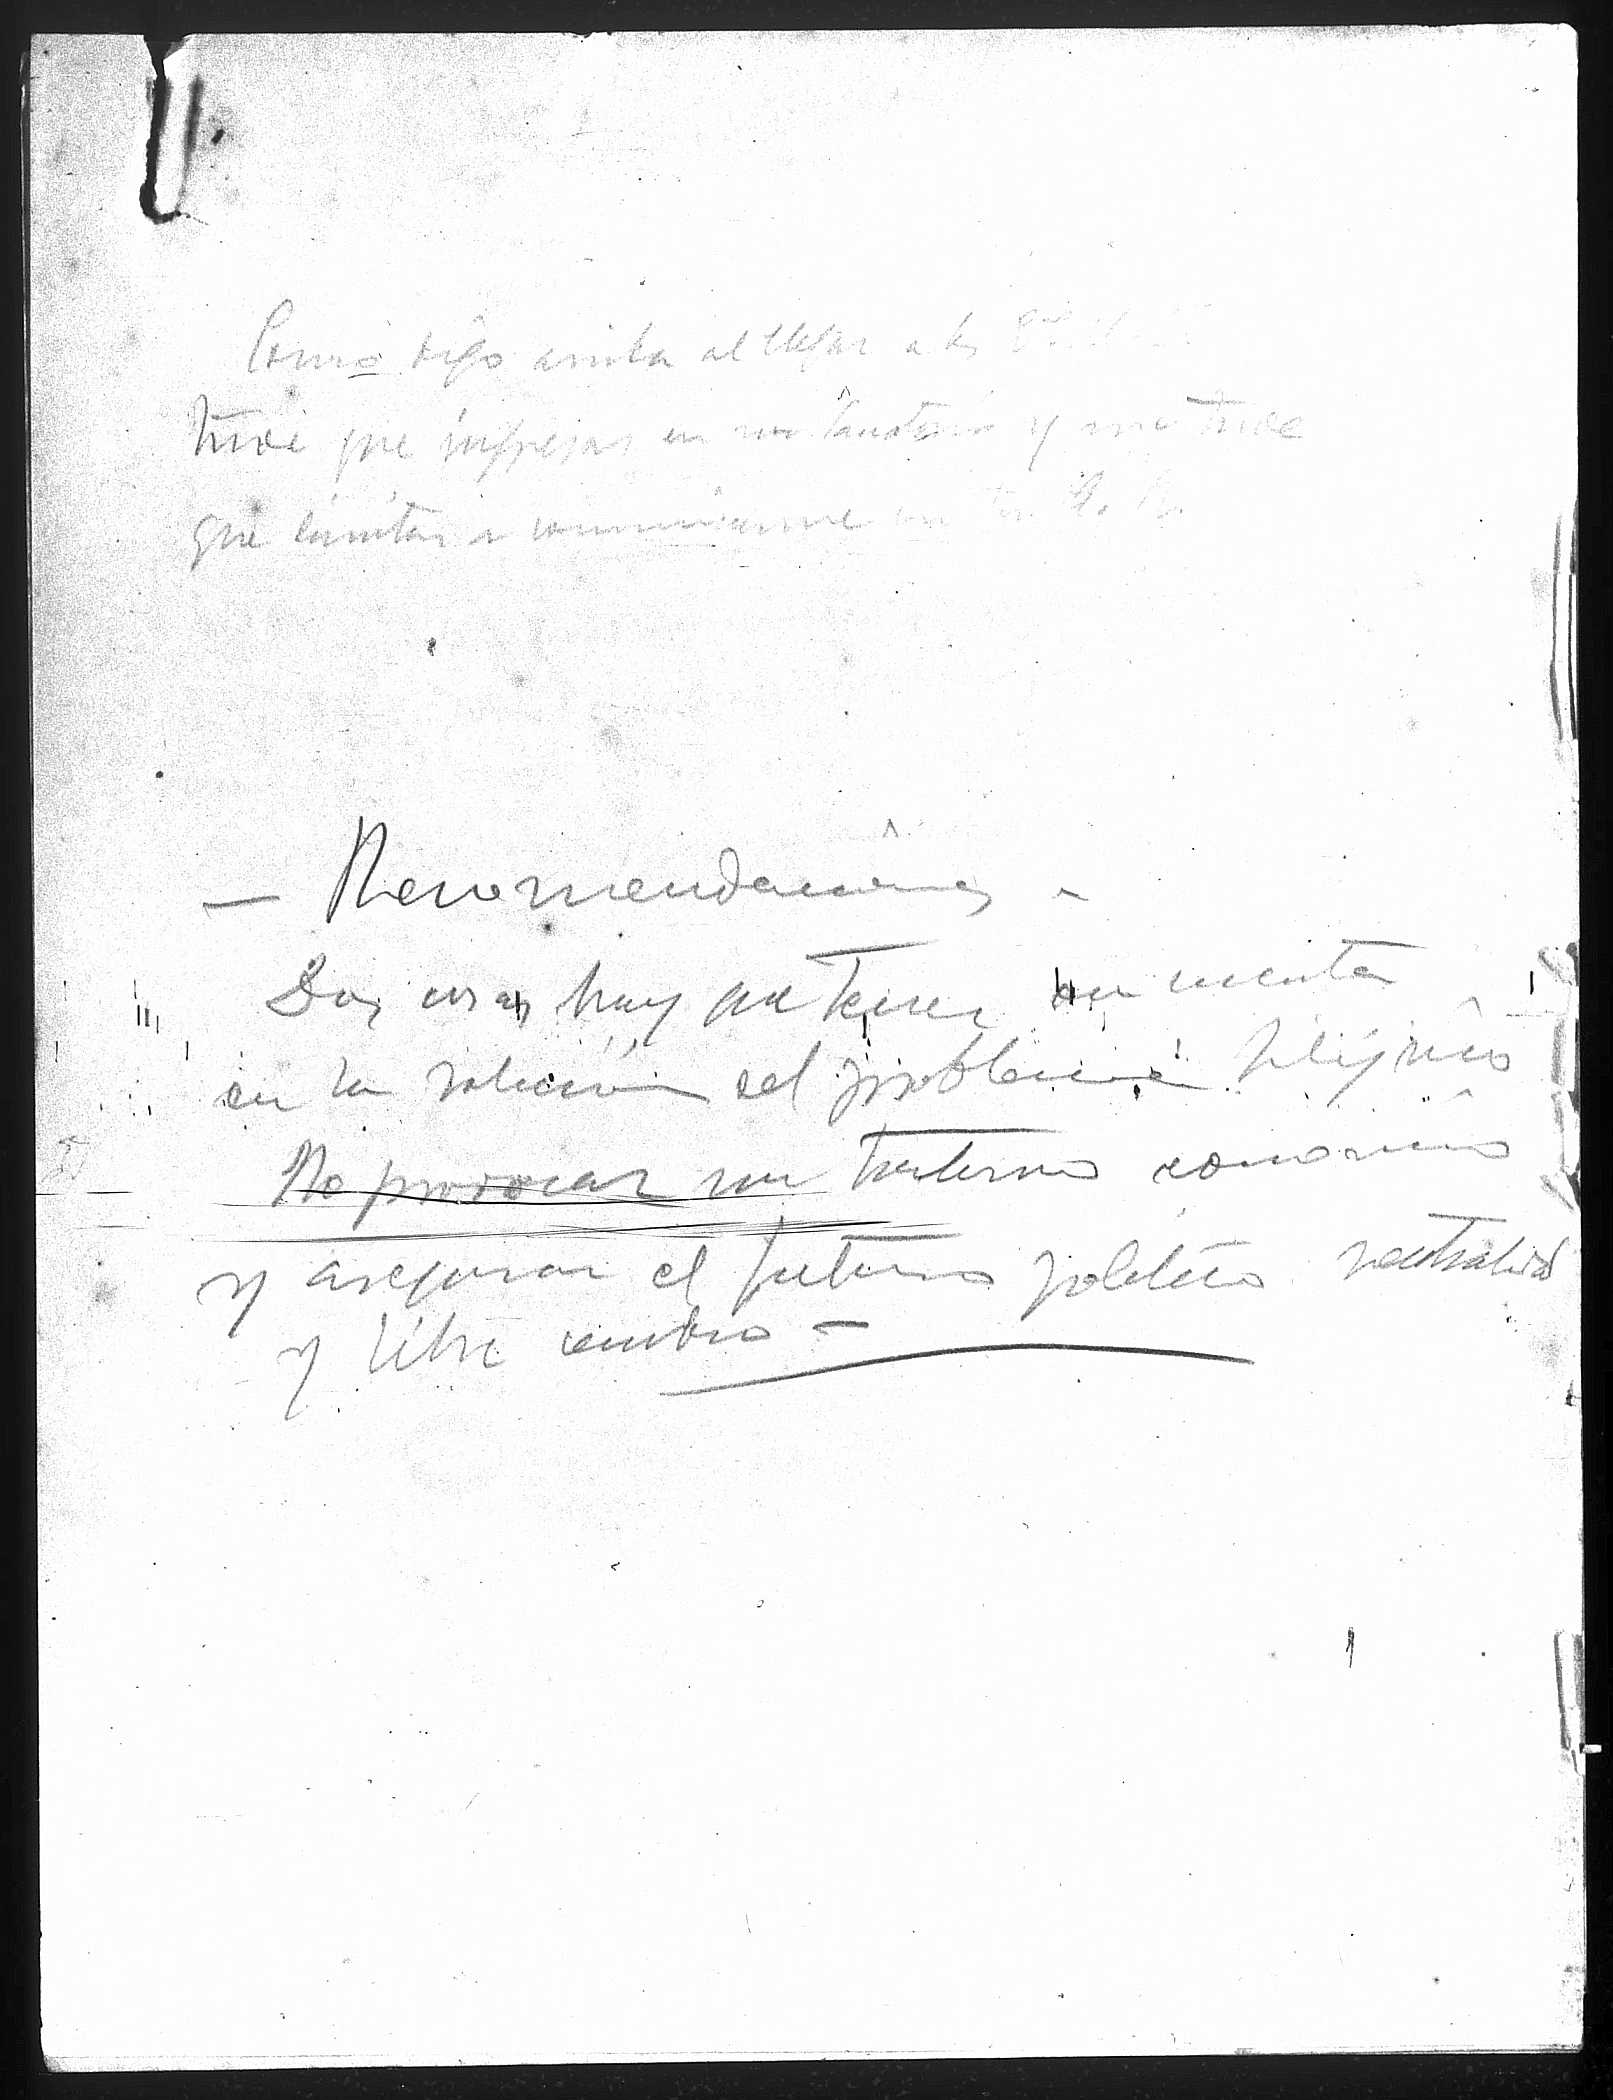 Como digo arriba al llegar a los
tuve que ingresar en un Sanatorio y me tuve
que limitar a comunicarme con
— Recomendaciones —
Dos cosas hay que tener en cuenta
en la solución del problema filipino
No provocar un trastorno economico
y asegurar el futuro politico neutralidad
y libre cambio —